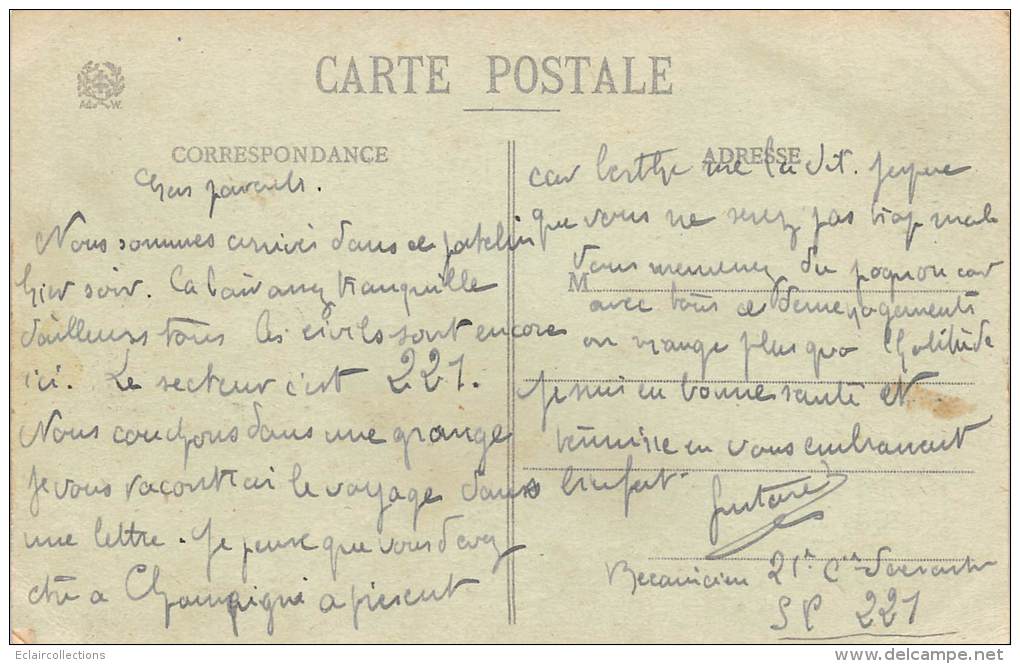 CARTE POSTALE
A W.
CORRESPONDANCE
Chers parents.
Nous sommes arrivés dans ce patelin
hier soir. Ca l'air assez tranquille
d'ailleurs tous les civils sont encore
ici. Le secteur c'est 221.
Nous couchons dans une grange
je vous raconterai le voyage dans
une lettre. Je pense que vous devez
être a Champigni a présent
ADRESSE
car berthe me l'a dit. J'espere
que vous ne serez pas trop mal
M
vous m'enverrez du pognon car
avec tous ce demenagements
on mange plus que d'habitude
Je suis en bonne santé et
termine en vous embrassant
bien fort.
Gustave
Becanicien 21e Cie
SP 221
Eclaircollections
www.delcampe.net